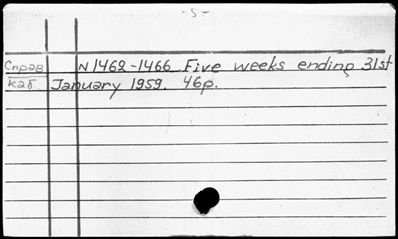 - 5 -
Справ N 1462-1466 Five weeks ending 31st
каб January 1959. 46p.